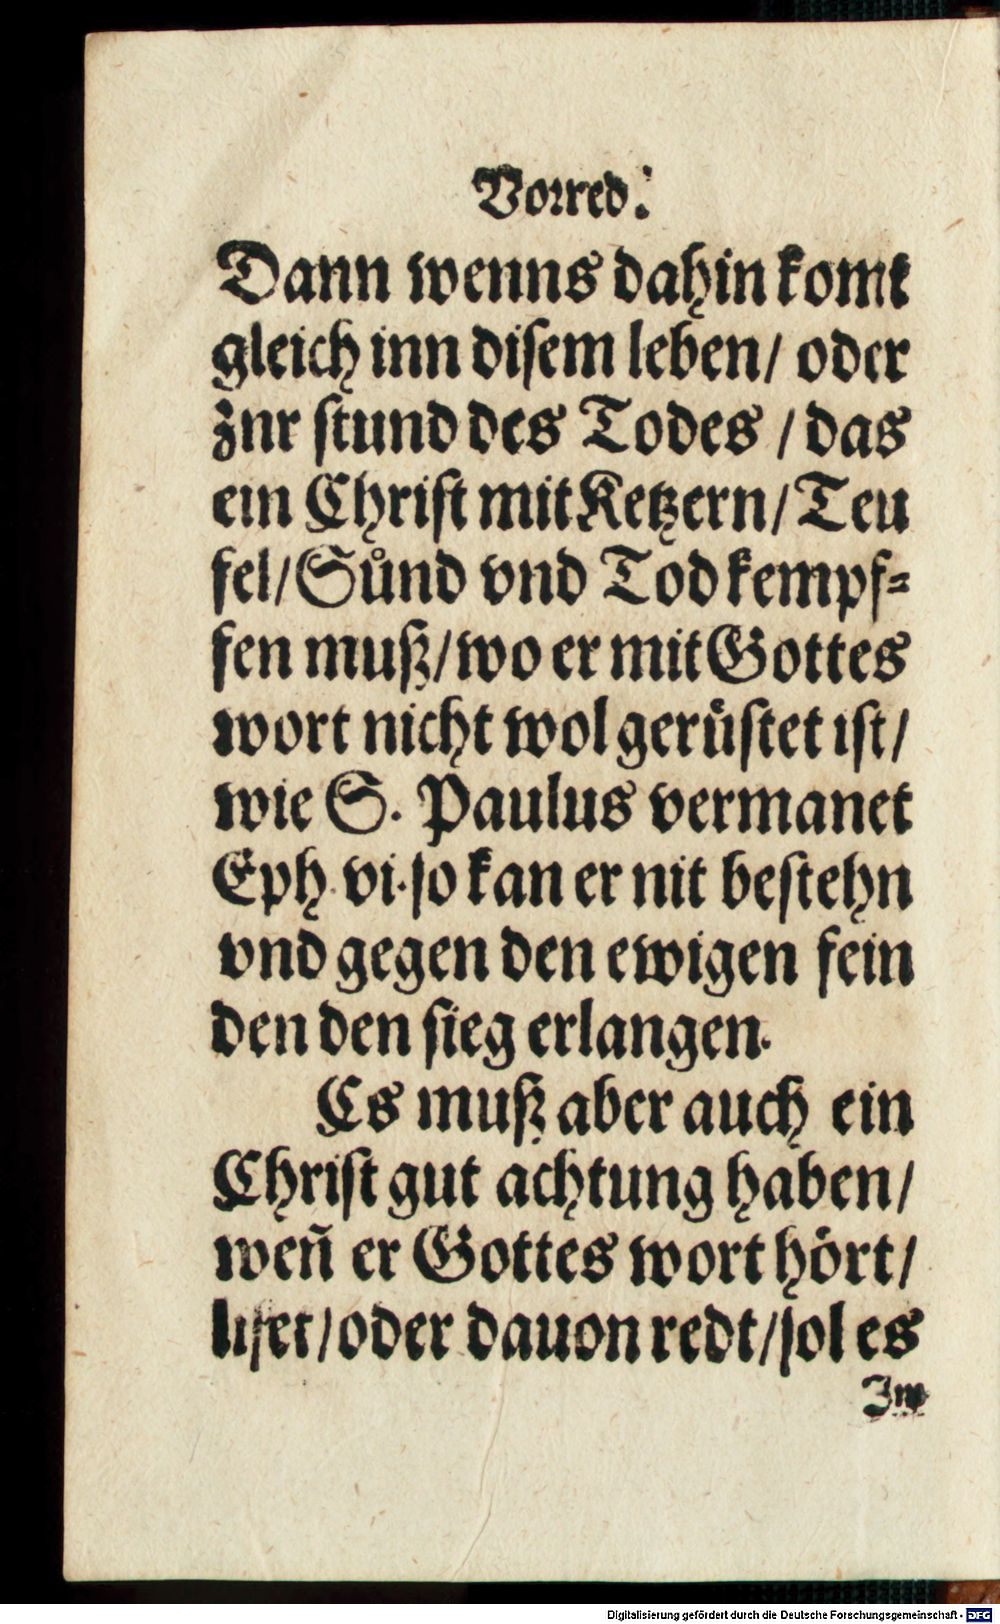 Vorred.
Dann wenns dahin komt
gleich inn disem leben/ oder
znr stund des Todes / das
ein Christ mit Ketzern/ Teu
fel/ Sůnd vnd Tod kempf⸗
fen muß/ wo er mit Gottes
wort nicht wol gerüstet ist/
wie S. Paulus vermanet
Eph. vi. so kan er nit bestehn
vnd gegen den ewigen fein
den den sieg erlangen.
Es muß aber auch ein
Christ gut achtung haben/
weñ er Gottes wort hört/
liset/ oder dauon redt/ sol es
Digitalisierung gefördert durch die Deutsche Forschungsgemeinschaft - DFG